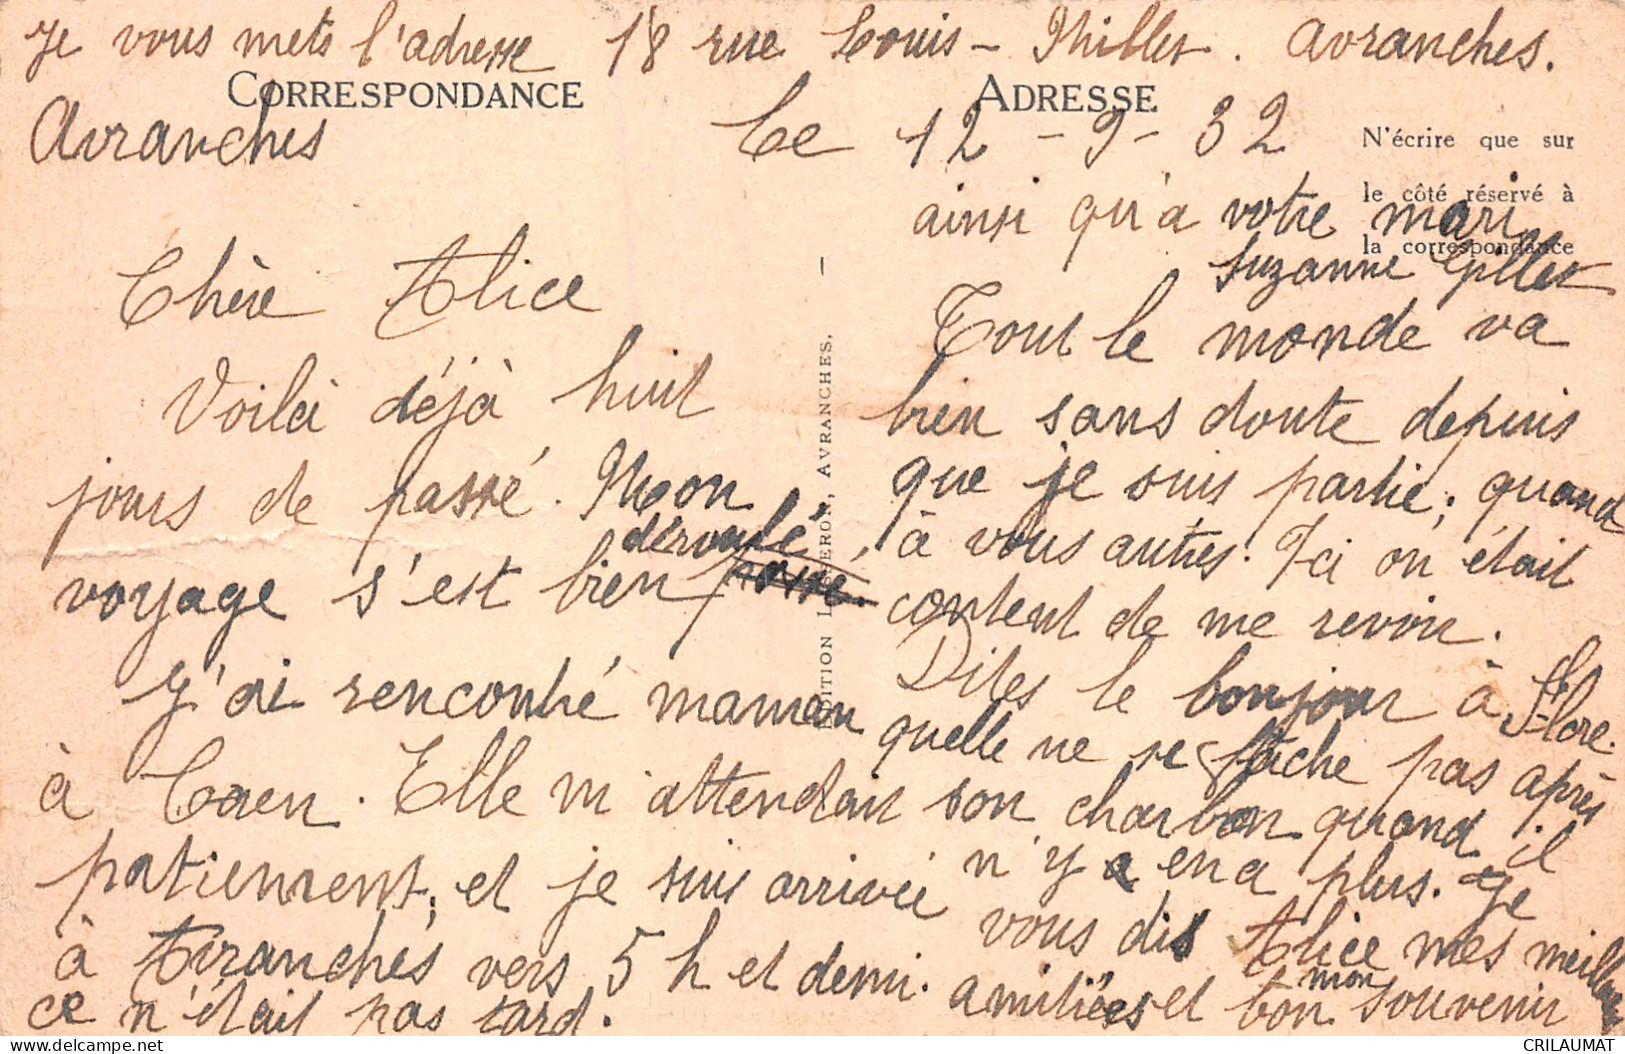 Je vous mets l'adresse 18 rue Louis - Millet. Avranches.
CORRESPONDANCE
ADRESSE
Avranches Le 12 - 9 - 32
N'écrire que sur
le côté réservé à
la correspondance
Chère Alice
Voilà déjà huit
jours de passé. Mon
déroulé
voyage s'est bien passé.
J'ai rencontré maman
à Caen. Elle m'attendais
patienment, et je suis arrivée
à Avranches vers 5 h et demi.
ce n'était pas tard.
EDITION LEPERON, AVRANCHES.
Tout le monde va
bien sans doute depuis
que je suis partie; quand
à vous autres. Ici on était
content de me revoir.
Dites le bonjour à Flore.
quelle ne se fâche pas après
son charbon quand il
n'y a en a plus. Je
vous dis Alice mes meilleures
amitiées et bon mon souvenir
ainsi qu'à votre mari
Suzanne Gillet
CRILAUMAT